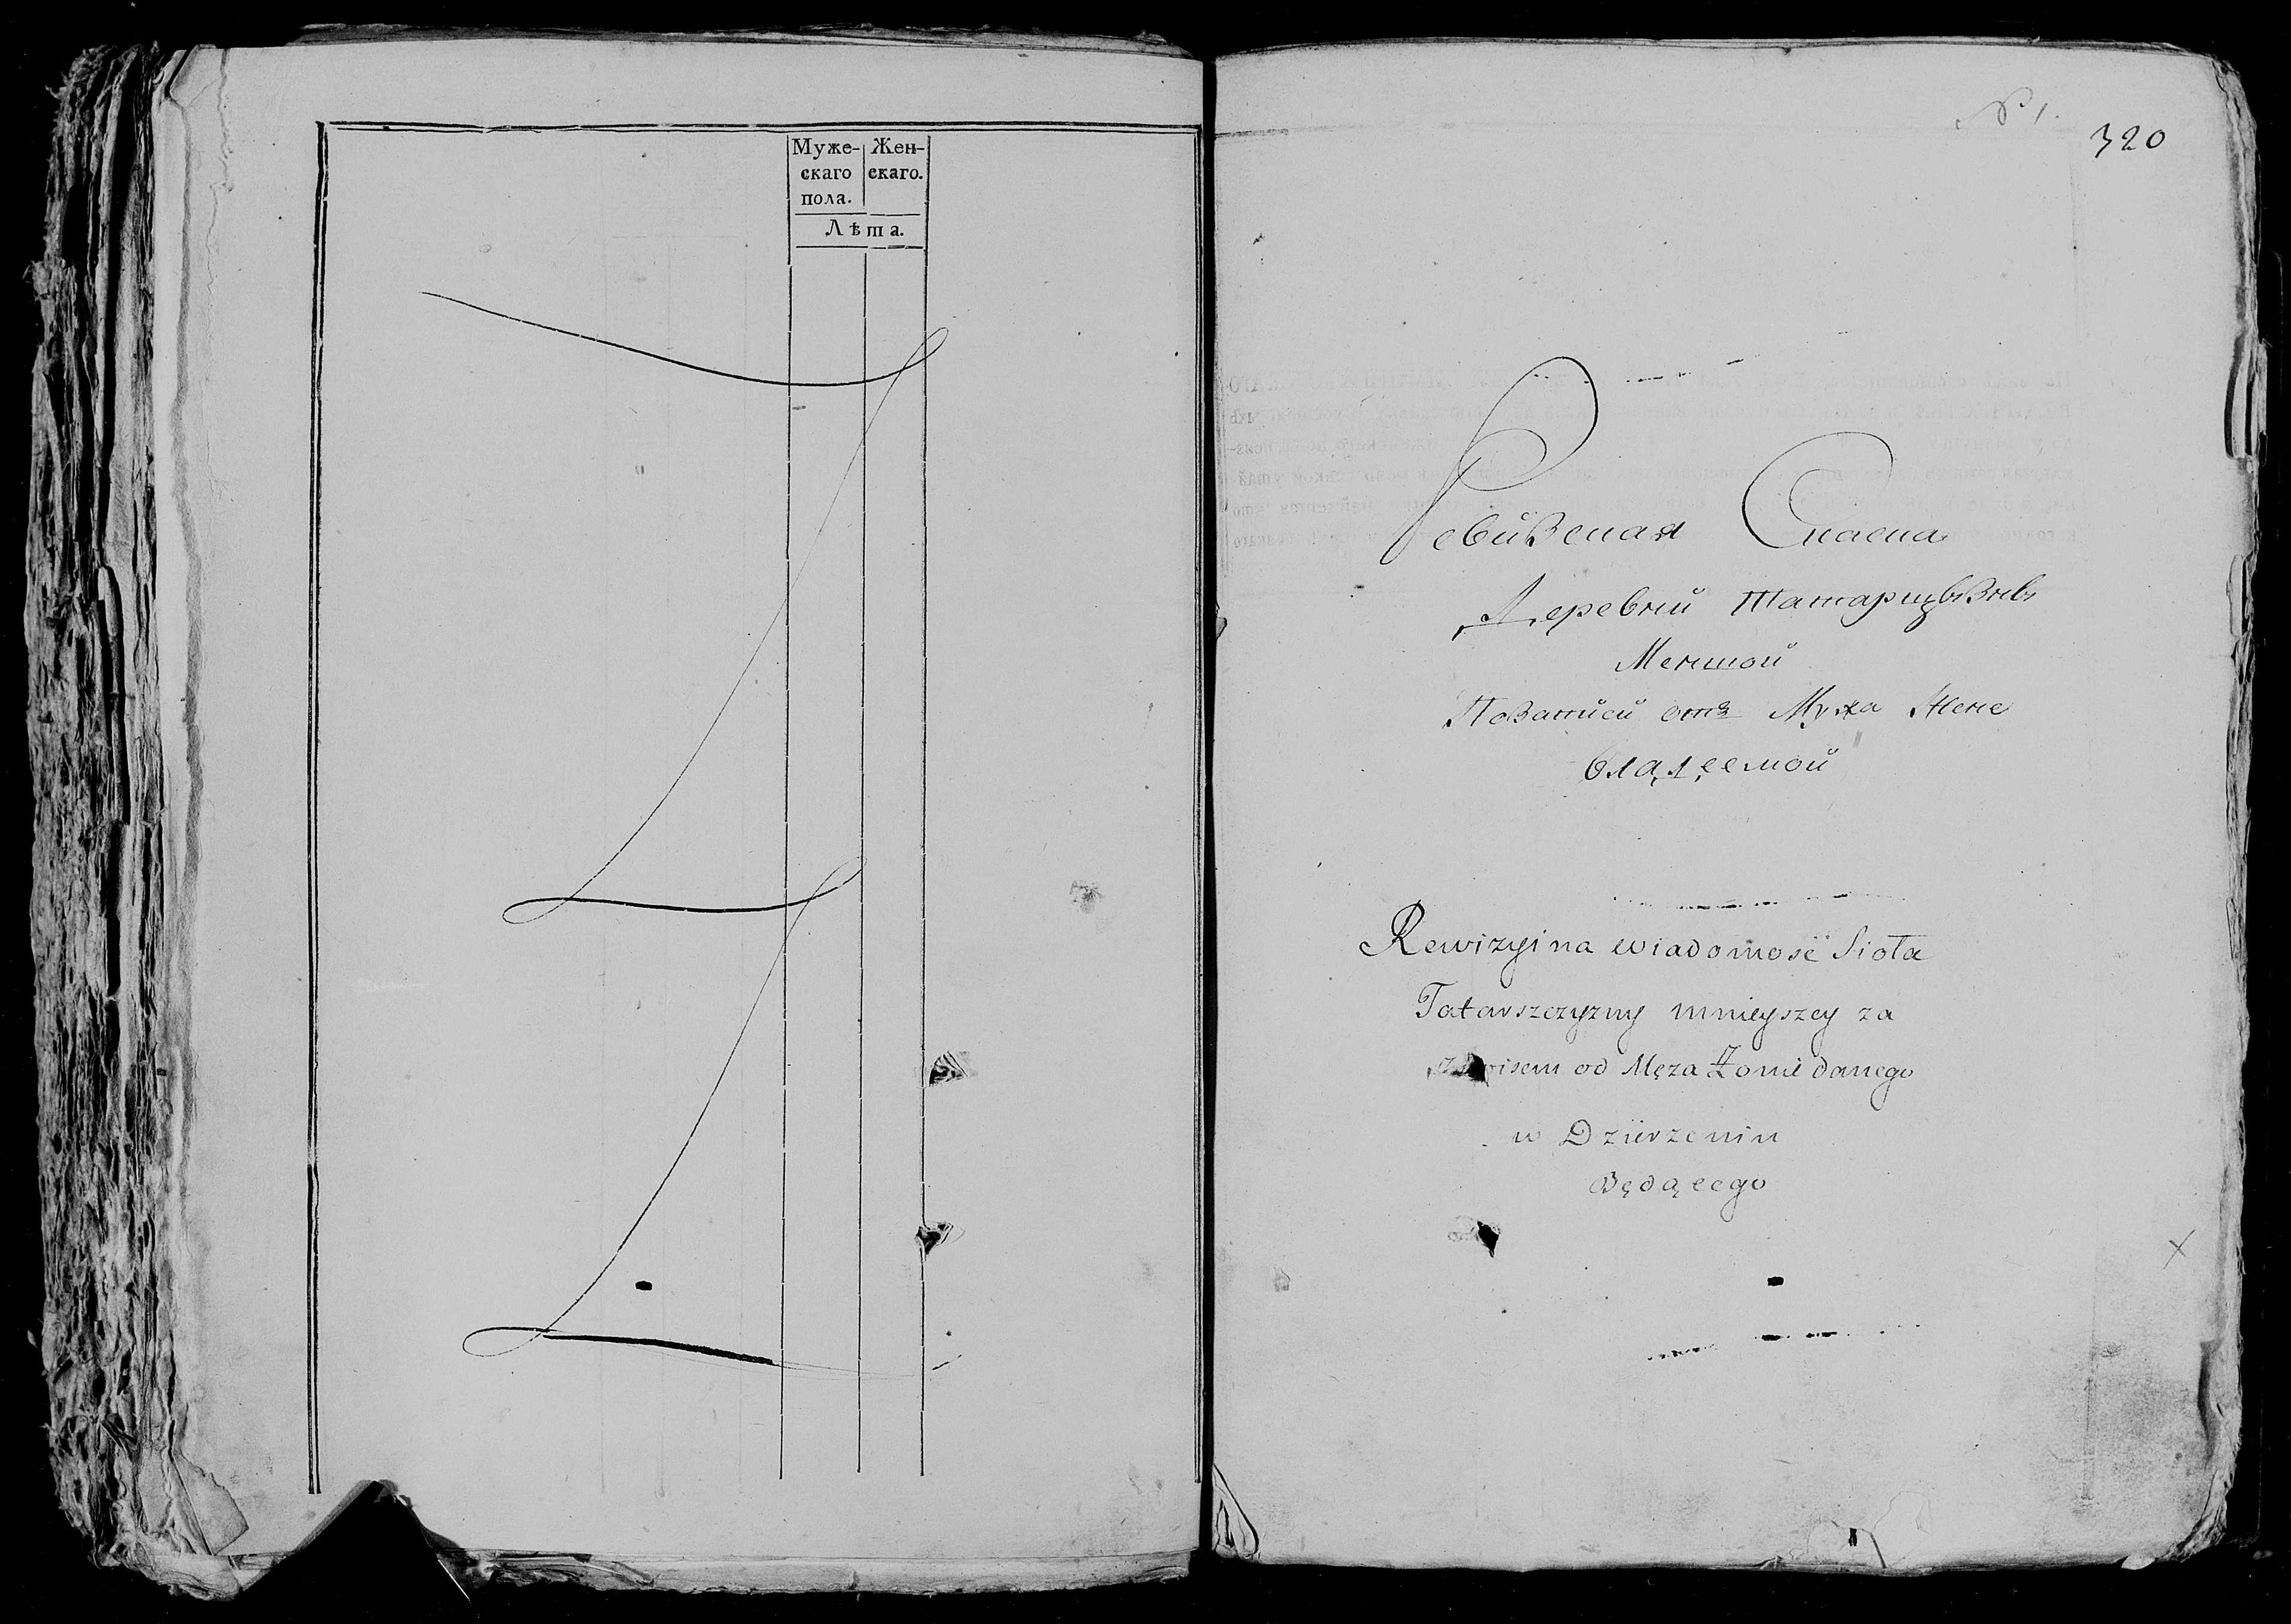 Муже-
скаго
пола.
Жен-
скаго.
Лѣта.
№ 1.
320
Ревизская Сказка
Деревни Татарщизнъ
Меншой
По затисй отъ Мужа Жене
владеемой
Rewizyina wiadomosć Sioła
Tatarszczyzny mnieyszey za
od Męza Żonie danego
w Dzierzeniu
Będącego